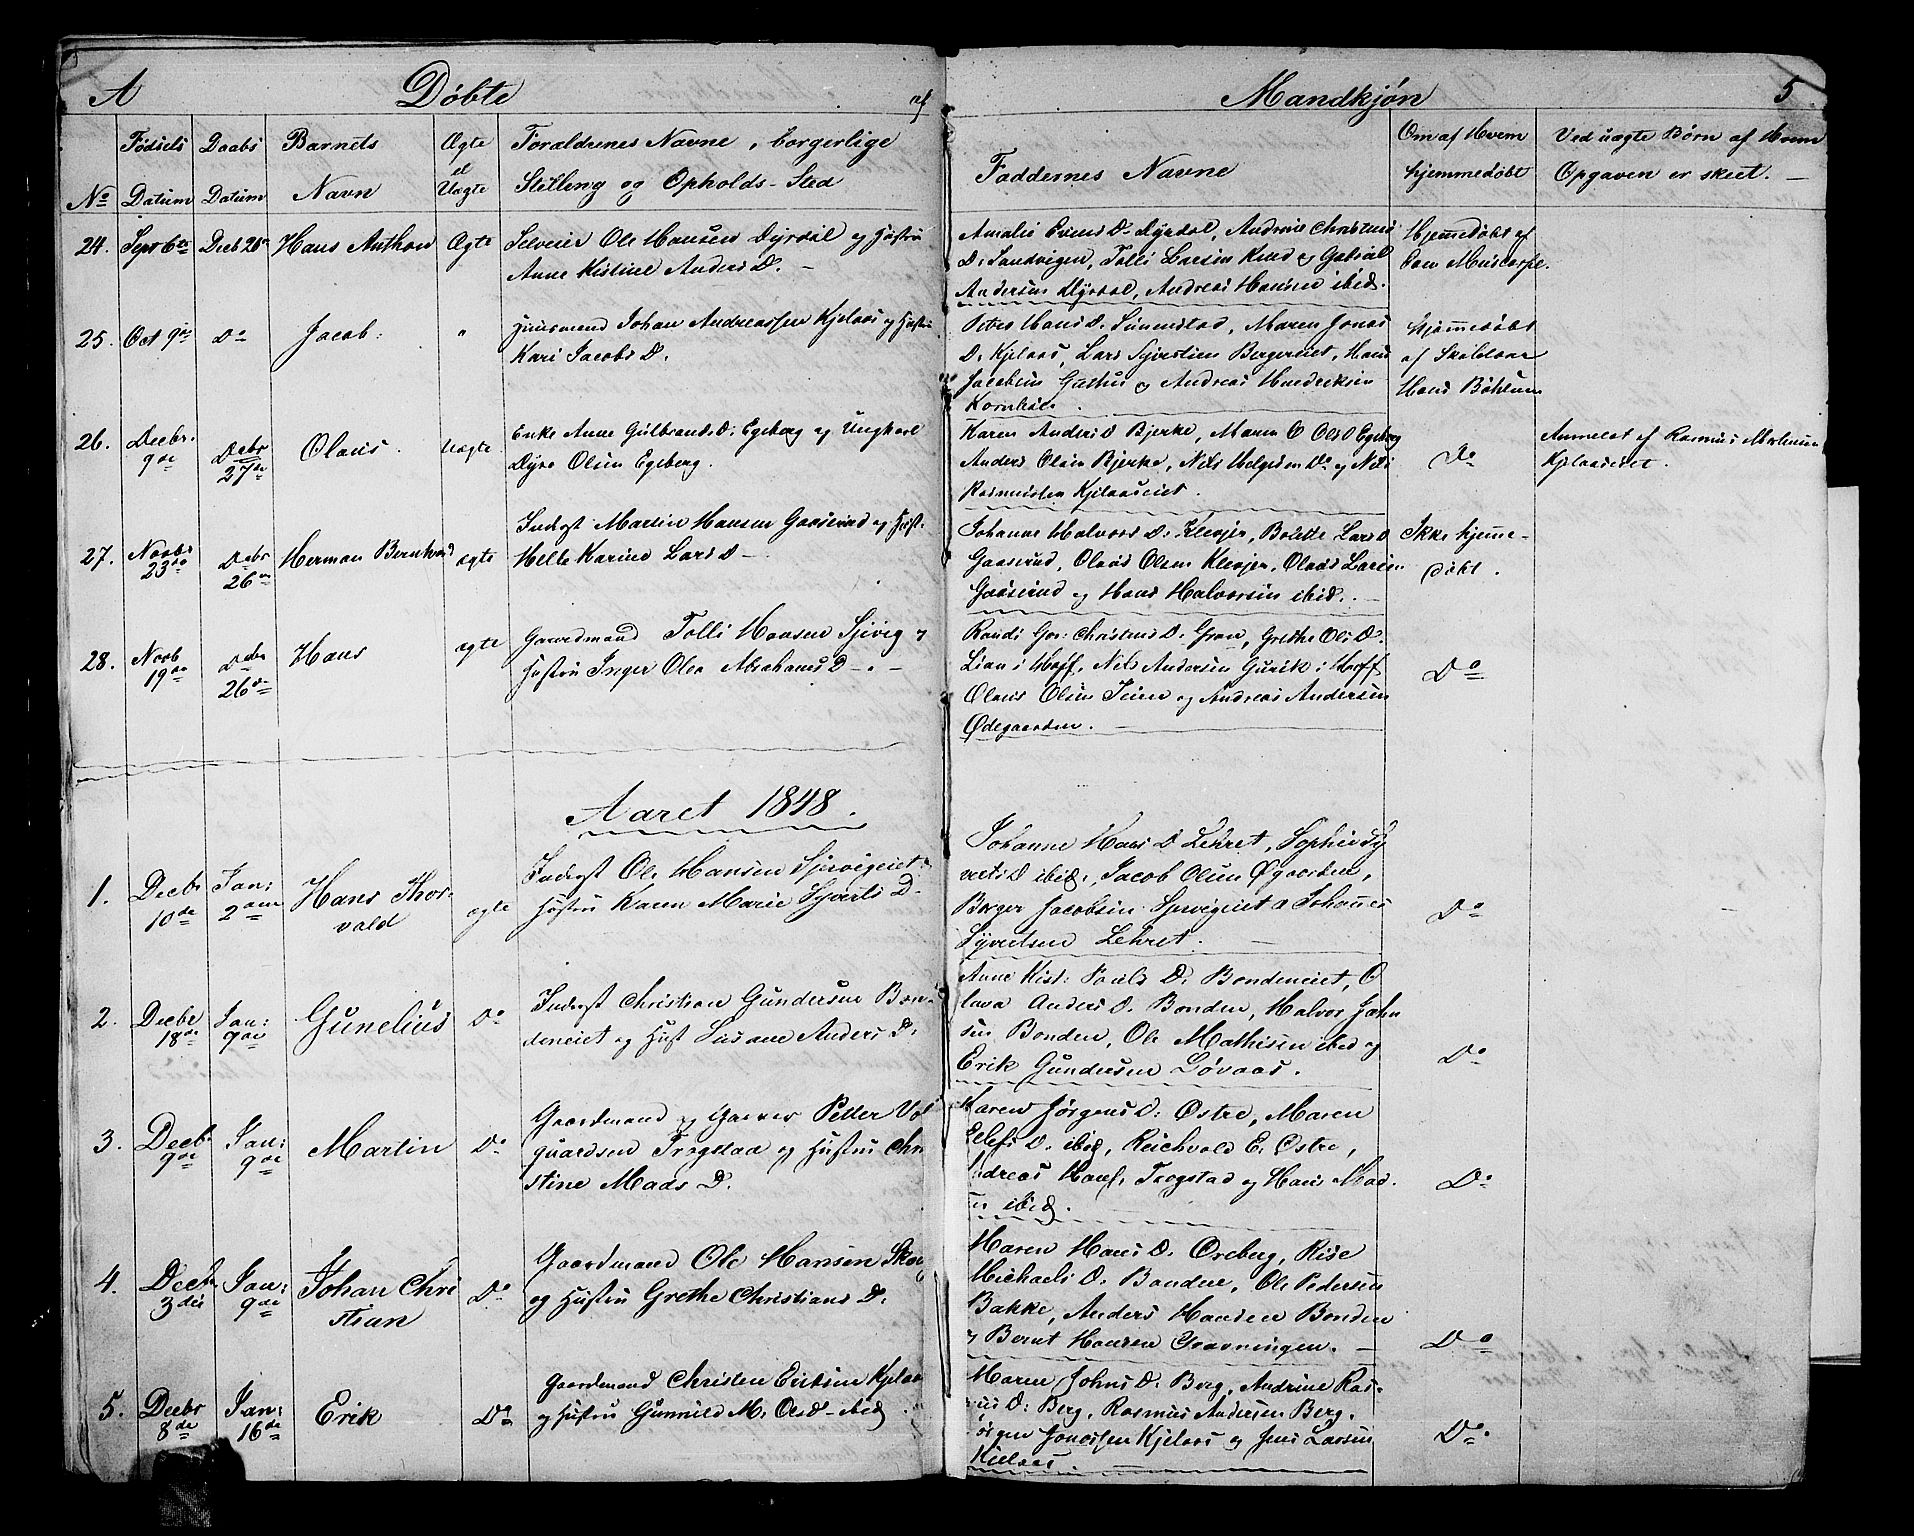 A Døbte af Mandkjøn 5
No Fødsels Datum Daabs Datum Barnets Navn Ægte el Uægte Forældrenes Navne, borgerlige Stilling og Opholds-Sted Faddernes Navne Om af Hvem hjemmedøbt Ved uægte Børn af Hvem Opgaven er skeet. —
24. Sept 6te Decb 26de Hans Anthon Ægte Selveier Ole Hansen Dyrdal og Hustru
Anne Kistine Anders D. —
Amalie Evens D. Dyrdal, Andrine Christens
D. Sandvigen, Tolli Larsen
Andersen Dyrdal, Andreas Hansen ibid.
Hjemmedøbt af
25. Oct 9de Do Jacob. " Huusmand Johan Andreassen Kjelaas og Hustru
Kari Jacobs D.
Petre Hans D. Maren Jonas
D. Kjelaas, Lars Bergereiet, Hans
Jacobsen og Andreas Hendriksen
Hjemmedøbt
af Skolelærer
Hans
26. Decbr. 9de Decbr 27de Olaus. Uægte Enke Anne Gulbrands D. Egeberg og Ungkarl
Dyre Olsen Egeberg.
Karen Anders D Bjerke, Maren O Ols D Egeberg
Anders Olsen Bjerke, Nils Helgesen Do og Nils
Rasmussen Kjelaaseiet.
Do
Anmeldt af Rasmus Mortensen
Kjelaaseiet.
27. Novbr 23de Debr 26de Herman Bernhard ægte Inderst Martin Hansen Gaaserud og Hust.
Helle Karine Lars D —
Johanne Halvors D. Klevjer, Bolette Lars D
Gaaserud, Olaus Olsen Klevjer, Olaus Larsen
Gaaserud og Hans Halvorsen ibid. —
Ikke hjemme-
døbt.
28. Novb 19de Debr 26de Hans ægte Gaardmand Tolli Hansen Sjivig og
Hustru Inger Olea Abrahams D —. —
Randi Gor: Christens D. Gran, Grethe Ols D.
Lian i Hoff, Nils Andersen Gurik i Hoff
Olaus Olsen og Andreas Andersen
Ødegaarden. —
Do
Aaret 1848.
1. Decbr 10de Jan: 2den Hans Thor-
vald ægte Inderst Ole Hansen Sjivigeiet
Hustru Karen Marie Syverts D.
Johanne Hans D Lehret, Sophie Sy
verts D ibid., Jacob Olsen Øgaarden,
Borger Jacobsen Johannes
Syvertsen Lehret. —
Do
2. Decbr 18de Jan: 9de Gunelius Do Inderst Christian Gundersen Bon-
deneiet og Hust Susane Anders D.
Anne Kist: Pauls D. Bondeneiet, O
lava Anders D. Bonden, Halvor John
sen Bonden, Ole Mathisen ibid og
Erik Gundersen Løvaas.
Do
3. Decbr 9de Jan: 9de Martin Do Gaardmand og Garver Petter Vol
quardsen Trogstad og Hustru Chri
stine Mads D.
Karen Jørgens D. Østre, Maren
Elefs D. ibid, Reichvald E. Østre,
Andreas Hans. Trogstad og Hans Mad-
sen ibid.
Do
4. Decbr 3die Jan: 9de Johan Chri
stian Do Gaardmand Ole Hansen Skoug
og Hustru Grethe Christians D.
Maren Hans D. Oreberg, Rise
Michaels D. Bondene, Ole Pedersen
Bakke, Anders Hansen Bonden
og Bernt Hansen Gravningen. —
Do
5. Decbr 8de Jan: 16de Erik Do Gaardmand Christen Eriksen Kjelaas
og Hustru Gunnild M. Ols D — ibid.
Maren Johns D. Berg, Andrine Ras-
mus D. Berg, Rasmus Andersen Berg.
Jørgen Jonassen Kjelaas og Jens Larsen
Kjelaas.
Do.